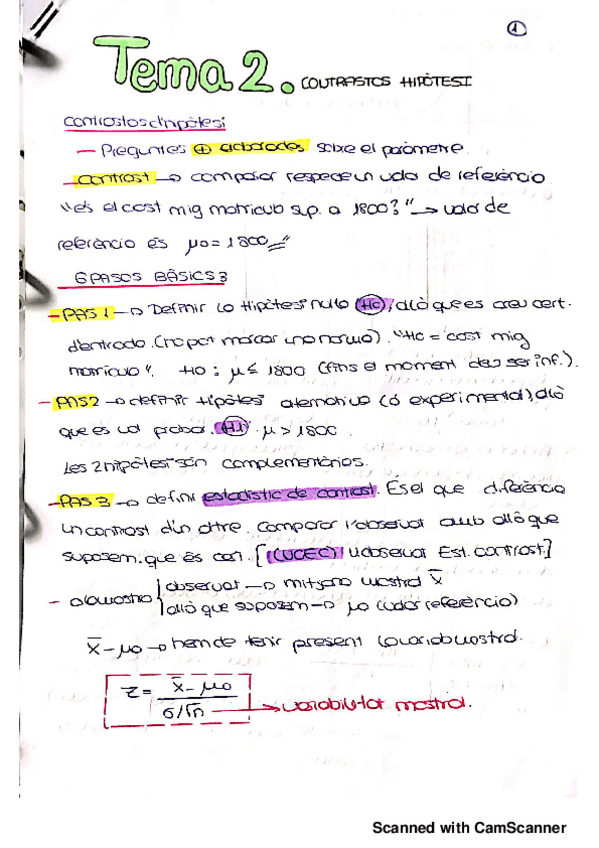 1
Tema 2. CONTRASTOS HIPÒTESI
Contrastos d'hipòtesi
— Preguntes ⊕ elaborades sobre el paràmetre.
— Contrast → comparar respecte un valor de referència
"és el cost mig matrícula sup. a 1800?" → valor de
referència és μo = 1800
6 PASOS BÀSICS
— PAS 1 → Definir la Hipòtesi nul·la (Ho), allò que es creu cert.
d'entrada. (no pot marcar una norma). "Ho = cost mig
matrícula". Ho : μ ≤ 1800 (fins el moment deu ser inf.).
— PAS 2 → definir hipòtesi alternativa (ó experimental), allò
que es vol probar. (H1) μ > 1800.
Les 2 hipòtesi són complementàries.
— PAS 3 → definir estadístic de contrast. És el que diferència
un contrast d'un altre. Comparar l'observat amb allò que
suposem que és cert. [(VOEC) V.observat Est. contrast]
— observat → mitjana mostral x̄
allò que suposem → μo (valor referència)
x̄ - μo → hem de tenir present la variab. mostral.
z = x̄ - μo / σ/√n → variabilitat mostral.
Scanned with CamScanner